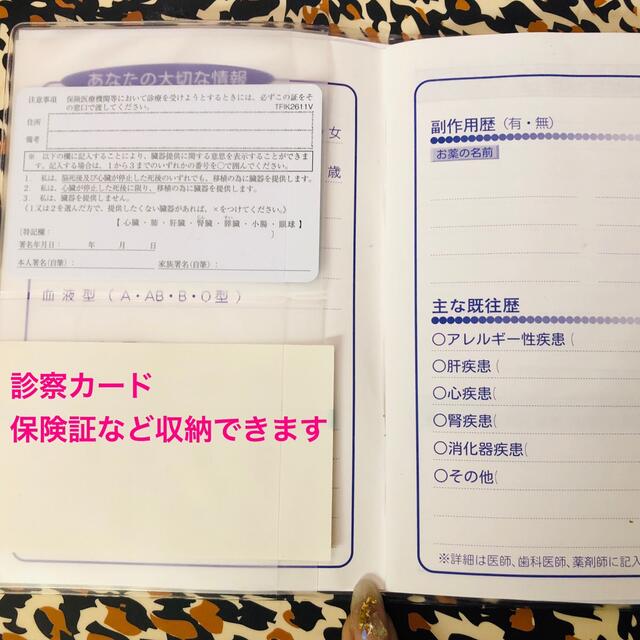 あなたの大切な情報
注意事項 保険医療機関等において診療を受けようとするときには、必ずこの証をそ
の窓口で渡してください。
TFIK2611V
住所
備考
※ 以下の欄に記入することにより、臓器提供に関する意思を表示することができま
す。記入する場合は、1から3までのいずれかの番号を○で囲んでください。
1. 私は、脳死後及び心臓が停止した死後のいずれでも、移植の為に臓器を提供します。
2. 私は、心臓が停止した死後に限り、移植の為に臓器を提供します。
3. 私は、臓器を提供しません。
〈1又は2を選んだ方で、提供したくない臓器があれば、×をつけてください。〉
【 心臓・肺・肝臓・腎臓・膵臓・小腸・眼球 】
〔特記欄: 〕
署名年月日: 年 月 日
本人署名(自筆): 家族署名(自筆):
女
歳
血液型(A・AB・B・O型)
診察カード
保険証など収納できます
副作用歴(有・無)
お薬の名前
主な既往歴
○アレルギー性疾患(
○肝疾患(
○心疾患(
○腎疾患(
○消化器疾患(
○その他(
※詳細は医師、歯科医師、薬剤師に記入